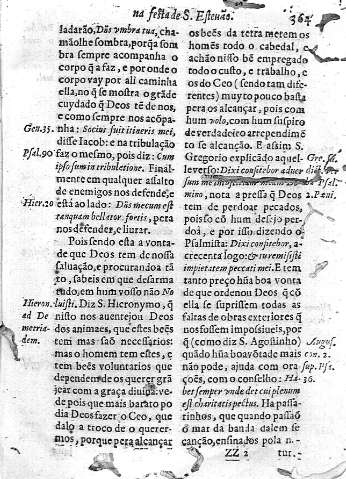 na festa de S. Esteuão.
364
ladarão, Dñs vmbra tua, cha-
mãolhe sombra, porq̃ a som
bra sempre acompanha o
corpo q̃ a faz, e por onde o
corpo vay por ali caminha
ella, no q̃ se mostra o grãde
cuydado q̃ Deos tẽ de nos,
e como sempre nos acõpa-
Gen. 35.
nha: Socius fuit itineris mei,
disse Iacob: e na tribulação
Psal. 90
faz o mesmo, pois diz: Cum
ipso sum in tribulatione. Final-
mente em qualquer assalto
de enemigos nos defende, e
Hier. 20
està ao lado: Dñs mecum est
tanquam bellator fortis, pera
nos defender, e liurar.
Pois sendo esta a vonta-
de que Deos tem de nossa
saluação, e procurandoa tã
to, sabeis em que desarma
tudo, em hum vosso não No
Hieron.
luisti, Diz S. Hieronymo, q̃
ad De
nisto nos auentejou Deos
metria-
dos animaes, que estes beẽs
dem.
tem mas saõ necessarios:
mas o homem tem estes, e
tem beẽs voluntarios que
dependem do se querer grã
jear com a graça diuina: ve-
de pois que mais barato po
dia Deos fazer o Ceo, que
dalo a troco de o querer-
mos, porque pera alcançar
os beẽs da terra metem os
homẽs todo o cabedal, e
achão nisso bẽ empregado
todo o custo, e trabalho, e
os do Ceo (sendo tam dife-
rentes) muyto pouco basta
pera os alcançar, pois com
hum volo, com hum suspiro
de verdadeiro arrependimẽ
to se alcanção. E assim S.
Gregorio explicãdo aquel-
Gre. sa.
le verso: Dixi confitebor aduer
mino, nota a pressa q̃ Deos
tem de perdoar pecados,
pois so cõ hum desejo per-
doà, e por isso dizendo o
Psalmista: Dixi confitebor, a-
crecenta logo: & tu remisisti
impietatem peccati mei. E tem
tanto preço hũa boa vonta-
de que ordenou Deos q̃ cõ
ella se suprissem todas as
faltas de obras exteriores q̃
nos fossem impossiueis, por
q̃ (como diz S. Agostinho)
August.
quãdo hũa boa võtade mais
con. 2.
não pode, ajuda com ora
sup. Ps.
ções, com o conselho: Ha-
36.
bet semper vnde det cui plenum
est charitatis pectus. Ha passa-
rinhos, que quando passaõ
o mar da banda dalem se
canção, ensinados pola n.-
ZZ 2
tur.